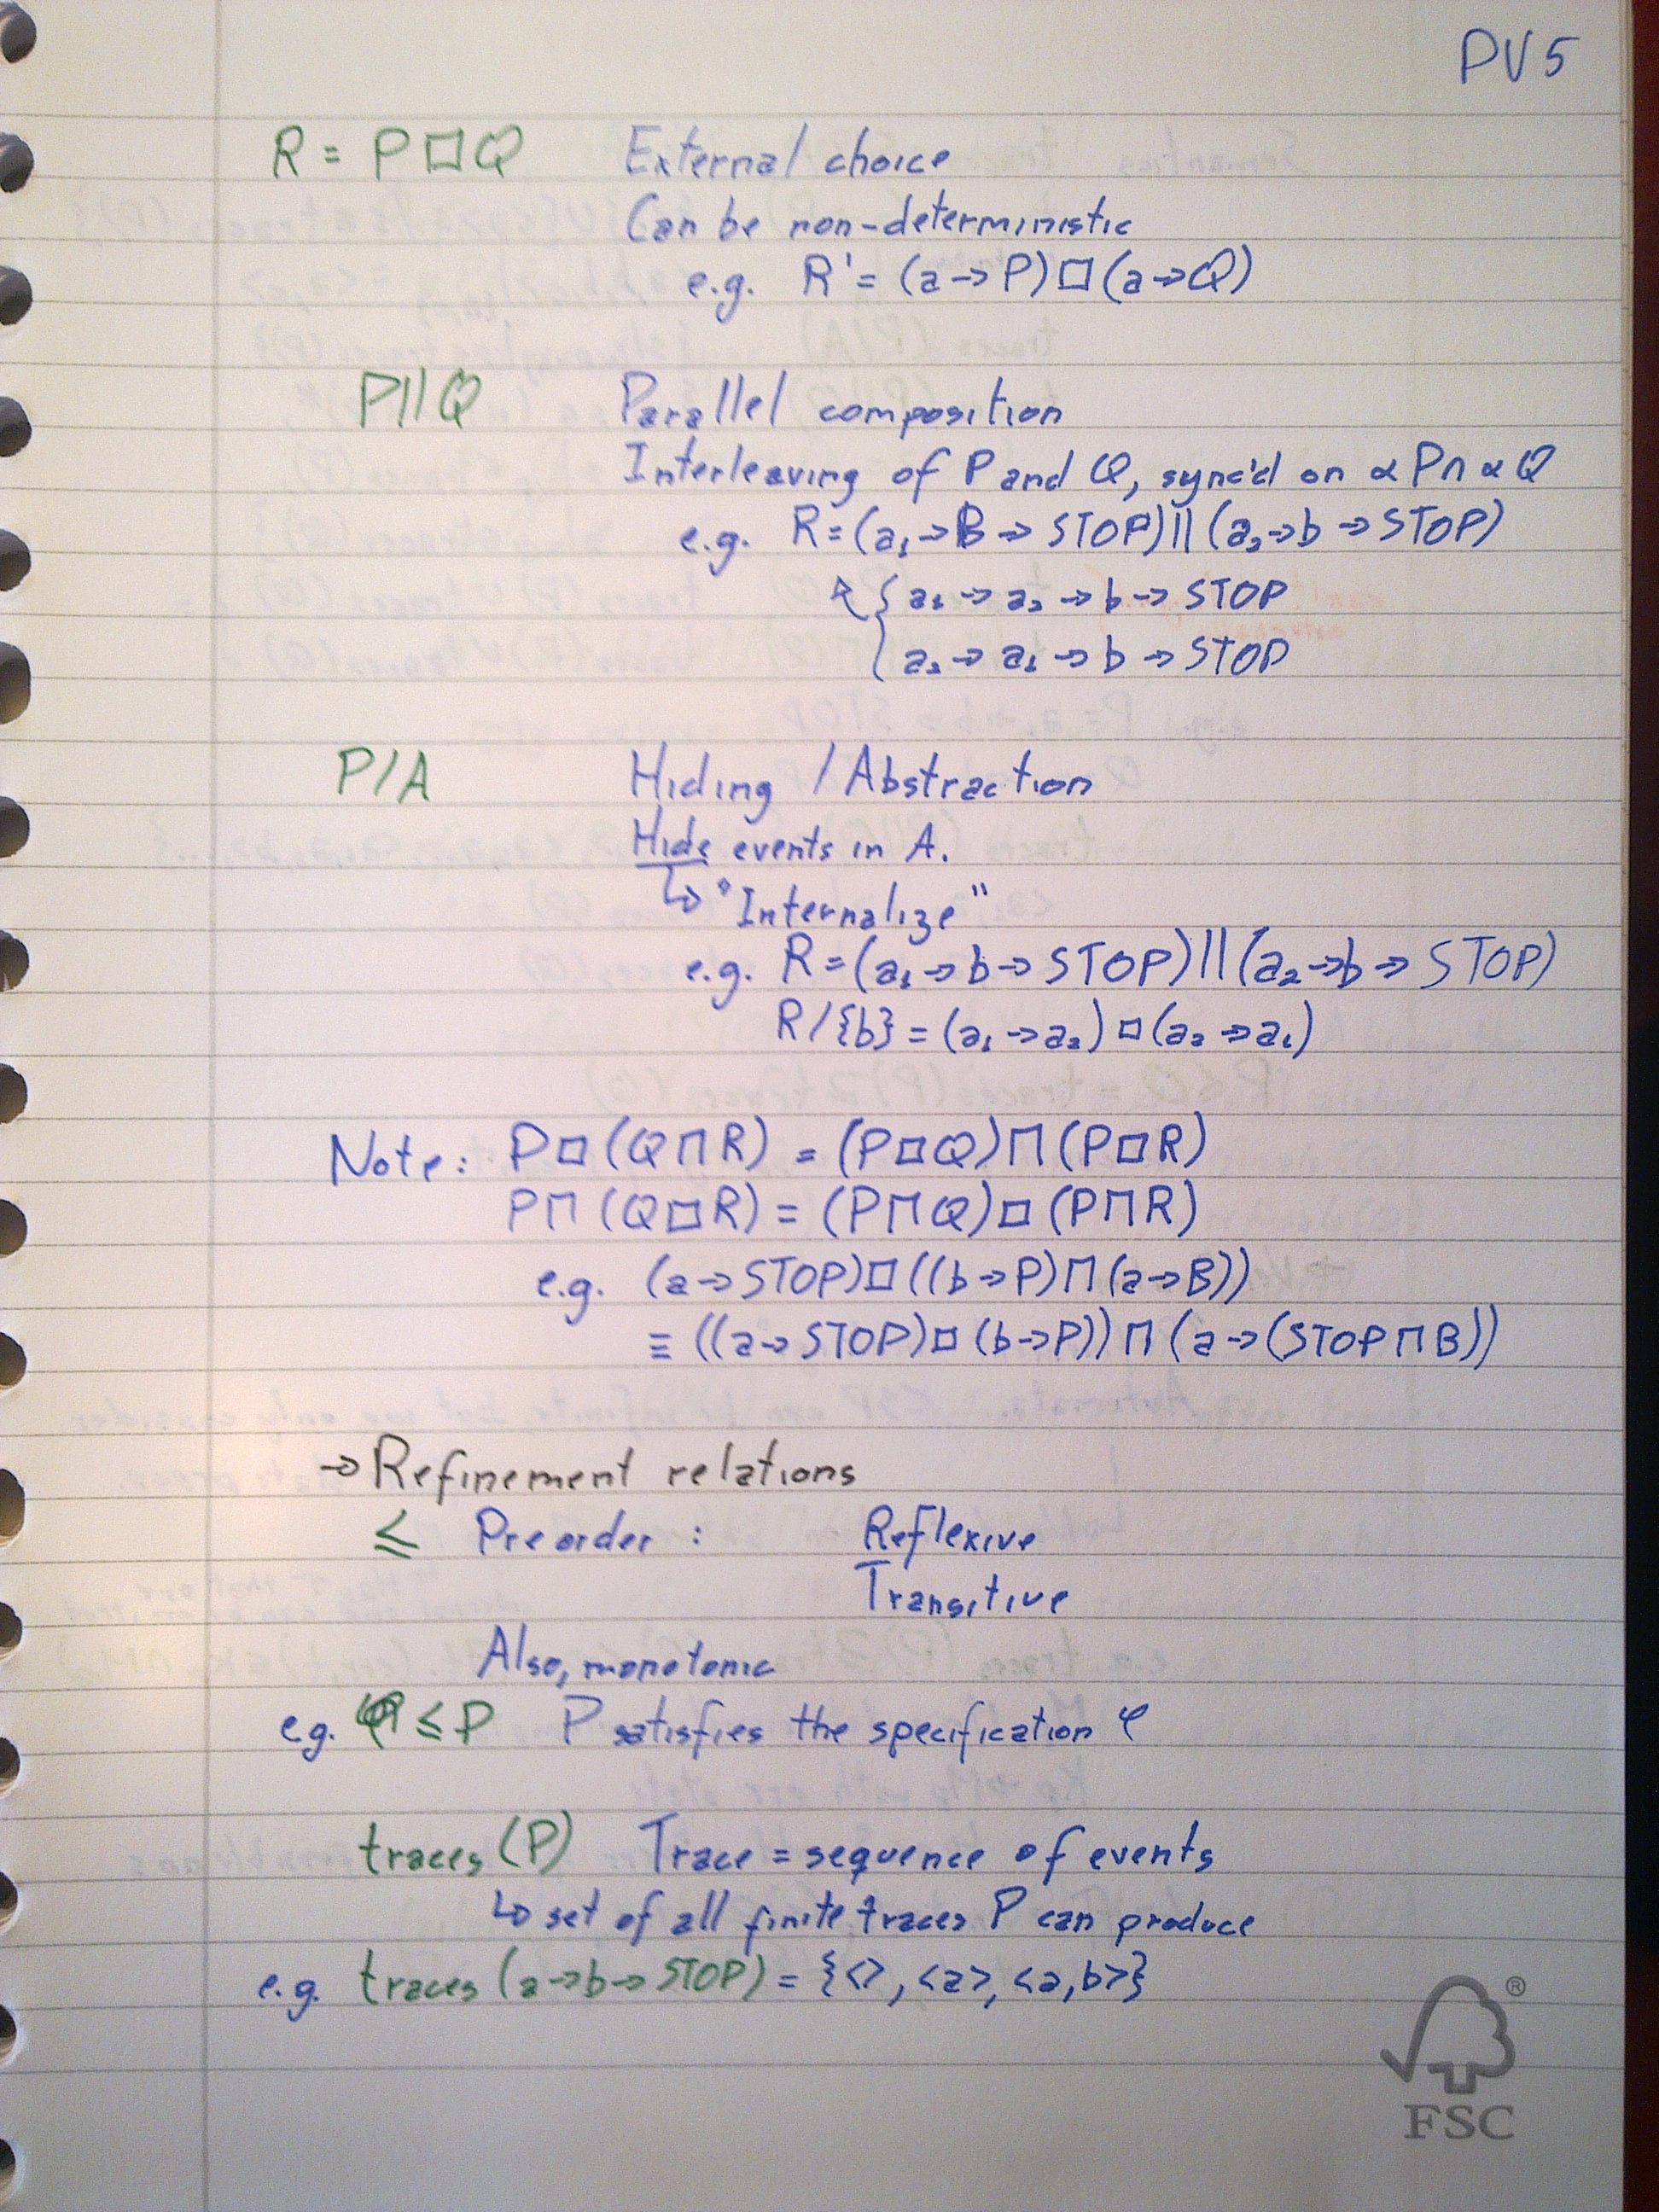 PV5
R = P □ Q External choice
Can be non-deterministic
e.g. R' = (a → P) □ (a → Q)
P || Q Parallel composition
Interleaving of P and Q, sync'd on αP ∩ αQ
e.g. R = (a₁ → B → STOP) || (a₂ → b → STOP)
a₁ → a₂ → b → STOP
a₂ → a₁ → b → STOP
P/A Hiding / Abstraction
Hide events in A.
↳ "Internalize"
e.g. R = (a₁ → b → STOP) || (a₂ → b → STOP)
R/{b} = (a₁ → a₂) □ (a₂ → a₁)
Note: P □ (Q ⊓ R) = (P □ Q) ⊓ (P □ R)
P ⊓ (Q □ R) = (P ⊓ Q) □ (P ⊓ R)
e.g. (a → STOP) □ ((b → P) ⊓ (a → B))
≡ ((a → STOP) □ (b → P)) ⊓ (a → (STOP ⊓ B))
→ Refinement relations
≤ Preorder : Reflexive
Transitive
Also, monotonic
e.g. φ ≤ P P satisfies the specification φ
traces (P) Trace = sequence of events
↳ set of all finite traces P can produce
e.g. traces (a → b → STOP) = {<>, <a>, <a,b>}
®
FSC